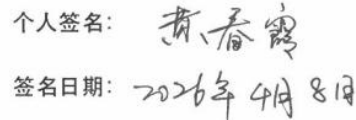 个人签名：黄春霞
签名日期：2026年4月8日